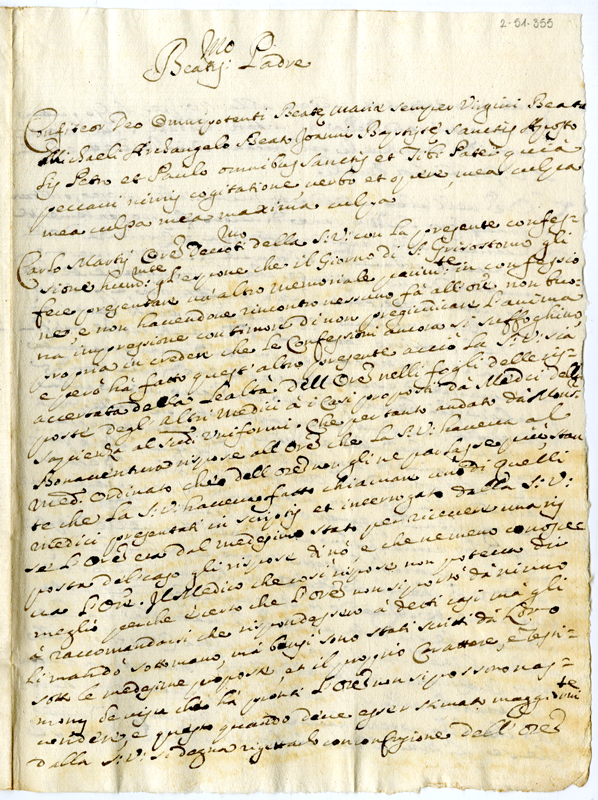 2-51-355
Beatis.mo Padre
Confiteor Deo Omnipotenti Beate Marie semper Virgini Beato
Michaeli Archangelo Beato Joanni Baptiste Sanctis Aposto
lis Petro et Paulo omnibus Sanctis et Tibi Pater quia
peccavi nimis cogitatione verbo et opere, mea culpa
mea culpa mea maxima culpa
Carlo Ore della S.V: con la presente confes-
sione gli espone che il Giorno di S. Grisostomo gli
fece presentare un'altro memoriale in confessio
ne, e non havendone rincontro nessuno fà all'ore non buo-
na impressione con timore di non pregiudicare l'anima
propria in creder che le Confessioni ancora si suffochino
e però hà fatto quest'altro presente acciò la S:V: sia
accertata della Lealtà dell'Ore nelli fogli delle ris-
poste degl'altri Medici à i Casi proposti dà Medici della
Sapienza al Uniformi. Che pertanto andato dà Mons.
Bonaventura rispose all'Ore che la S:V: haveva al
Ordinato che dell'Ore non gli ne parlasse più stan
te che la S:V: haveva fatto chiamare uno di quelli
Medici presentati in scriptis et interrogato dalla S:V:
se l'Ore era dal medesimo stato per ricevere una ris
posta del caso gli rispose di nò, e che nemeno conosce
va l'Ore. Il Medico che così rispose non poteva dir
meglio perche è certo che l'Ore non si portò dà niuno
è raccomandarsi che rispondessero à detti casi mà gli
li mandò sottomano, mà bensì sono stati scritti dà Loro
sotto le medesime proposte et il proprio Carattere, e
che hà pronti l'Ore non si possono nas-
condere, e questo quando deve esser stimato
dalla S:V: si degna rigettarlo con confusione dell'Ore